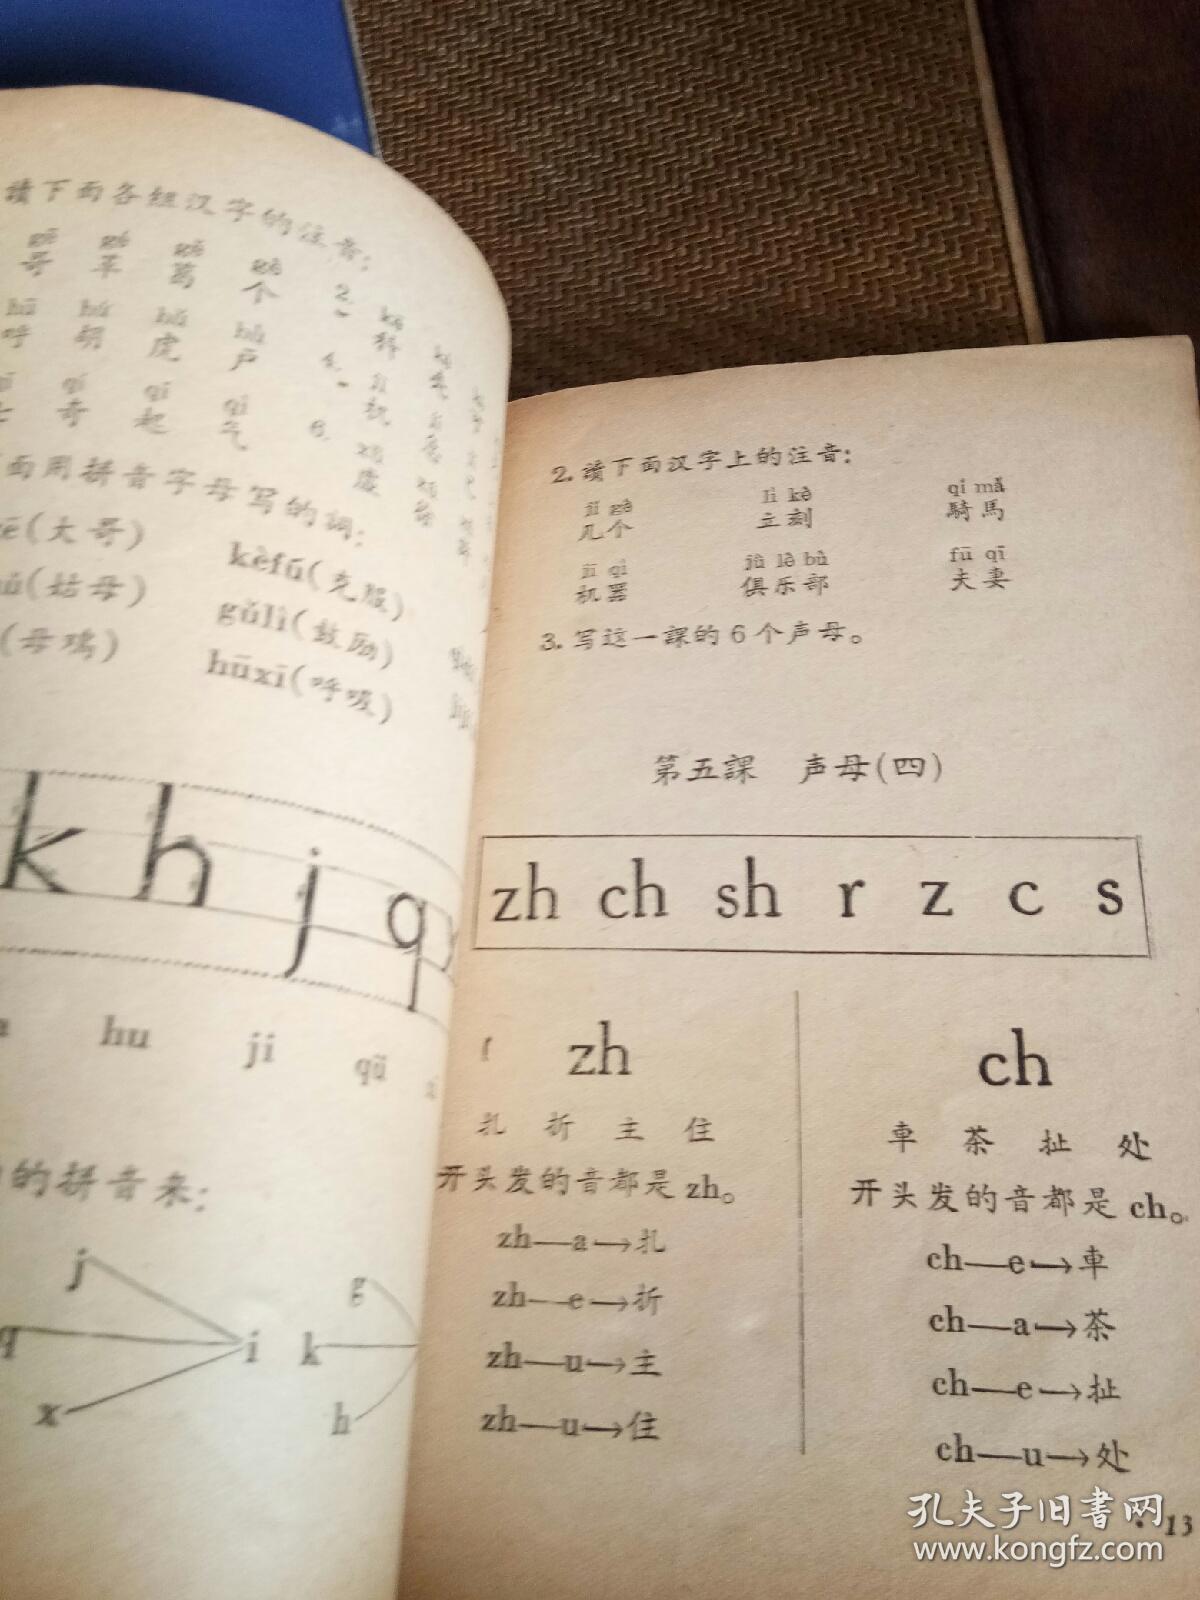 讀下面各組汉字的注音：
gē gé gě gè
哥 革 葛 个
hū hú hǔ hù
呼 胡 虎 户
qí qǐ qì
奇 起 气
2. kē
科
4. jī
机
6. xū
虛
面用拼音字母写的詞：
(大哥) kèfú(克服)
(姑母) gǔlì(鼓励)
(母鸡) hūxī(呼吸)
k h j q
hu ji qū
的拼音来：
j
q i
x
g
k
h
2. 讀下面汉字上的注音：
jǐ gè lì kè qí mǎ
几个 立刻 騎馬
jī qì jù lè bù fū qī
机器 俱乐部 夫妻
3. 写这一課的6个声母。
第五課 声母(四)
zh ch sh r z c s
zh
扎 折 主 住
开头发的音都是 zh。
zh—a→扎
zh—e→折
zh—u→主
zh—u→住
ch
車 茶 扯 处
开头发的音都是 ch。
ch—e→車
ch—a→茶
ch—e→扯
ch—u→处
·13
孔夫子旧书网
www.kongfz.com